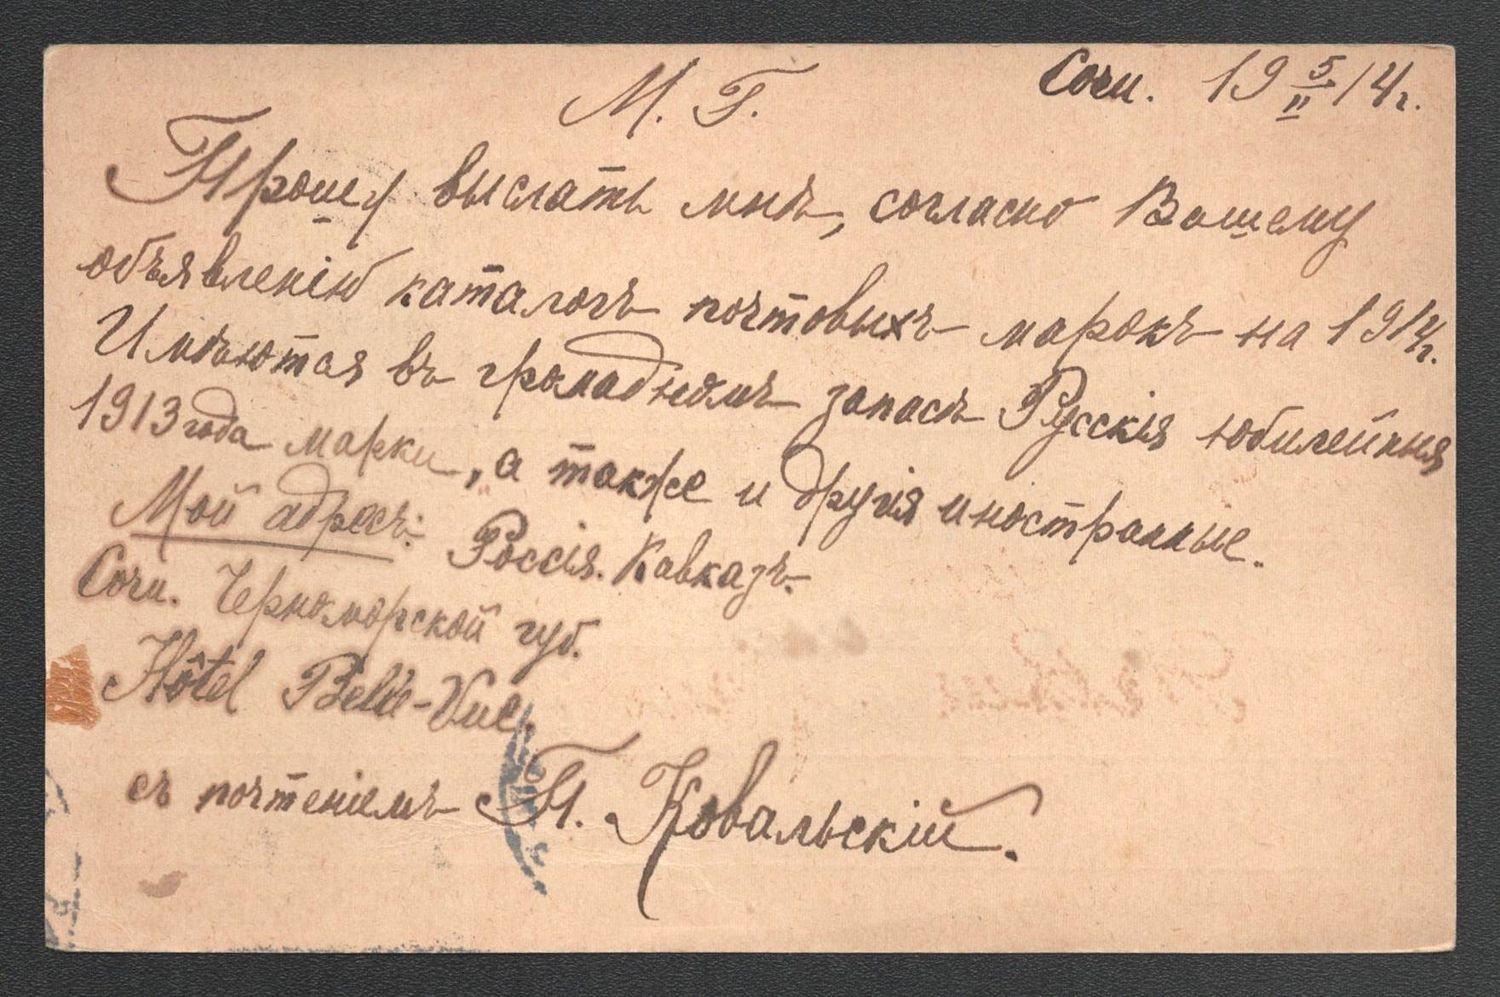 Сочи. 19 5/II 14 г.
М. Г.
Прошу выслать мнѣ, согласно Вашему
объявленію каталогъ почтовыхъ марокъ на 1914 г.
Имѣются въ громадномъ запасѣ Русскія юбилейныя
1913 года марки, а также и другія иностранные.
Мой адресъ: Россія. Кавказъ.
Сочи. Черноморской губ.
Hôtel Belle-Vue.
съ почтеніемъ П. Ковальскій.